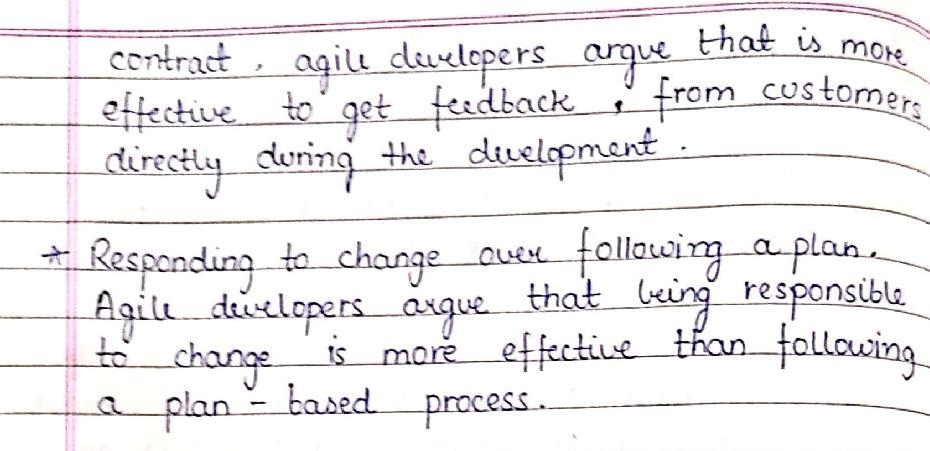 contract, agile developers argue that is more
effective to get feedback, from customers
directly during the development.
* Responding to change over following a plan.
Agile developers argue that being responsible
to change is more effective than following
a plan - based process.